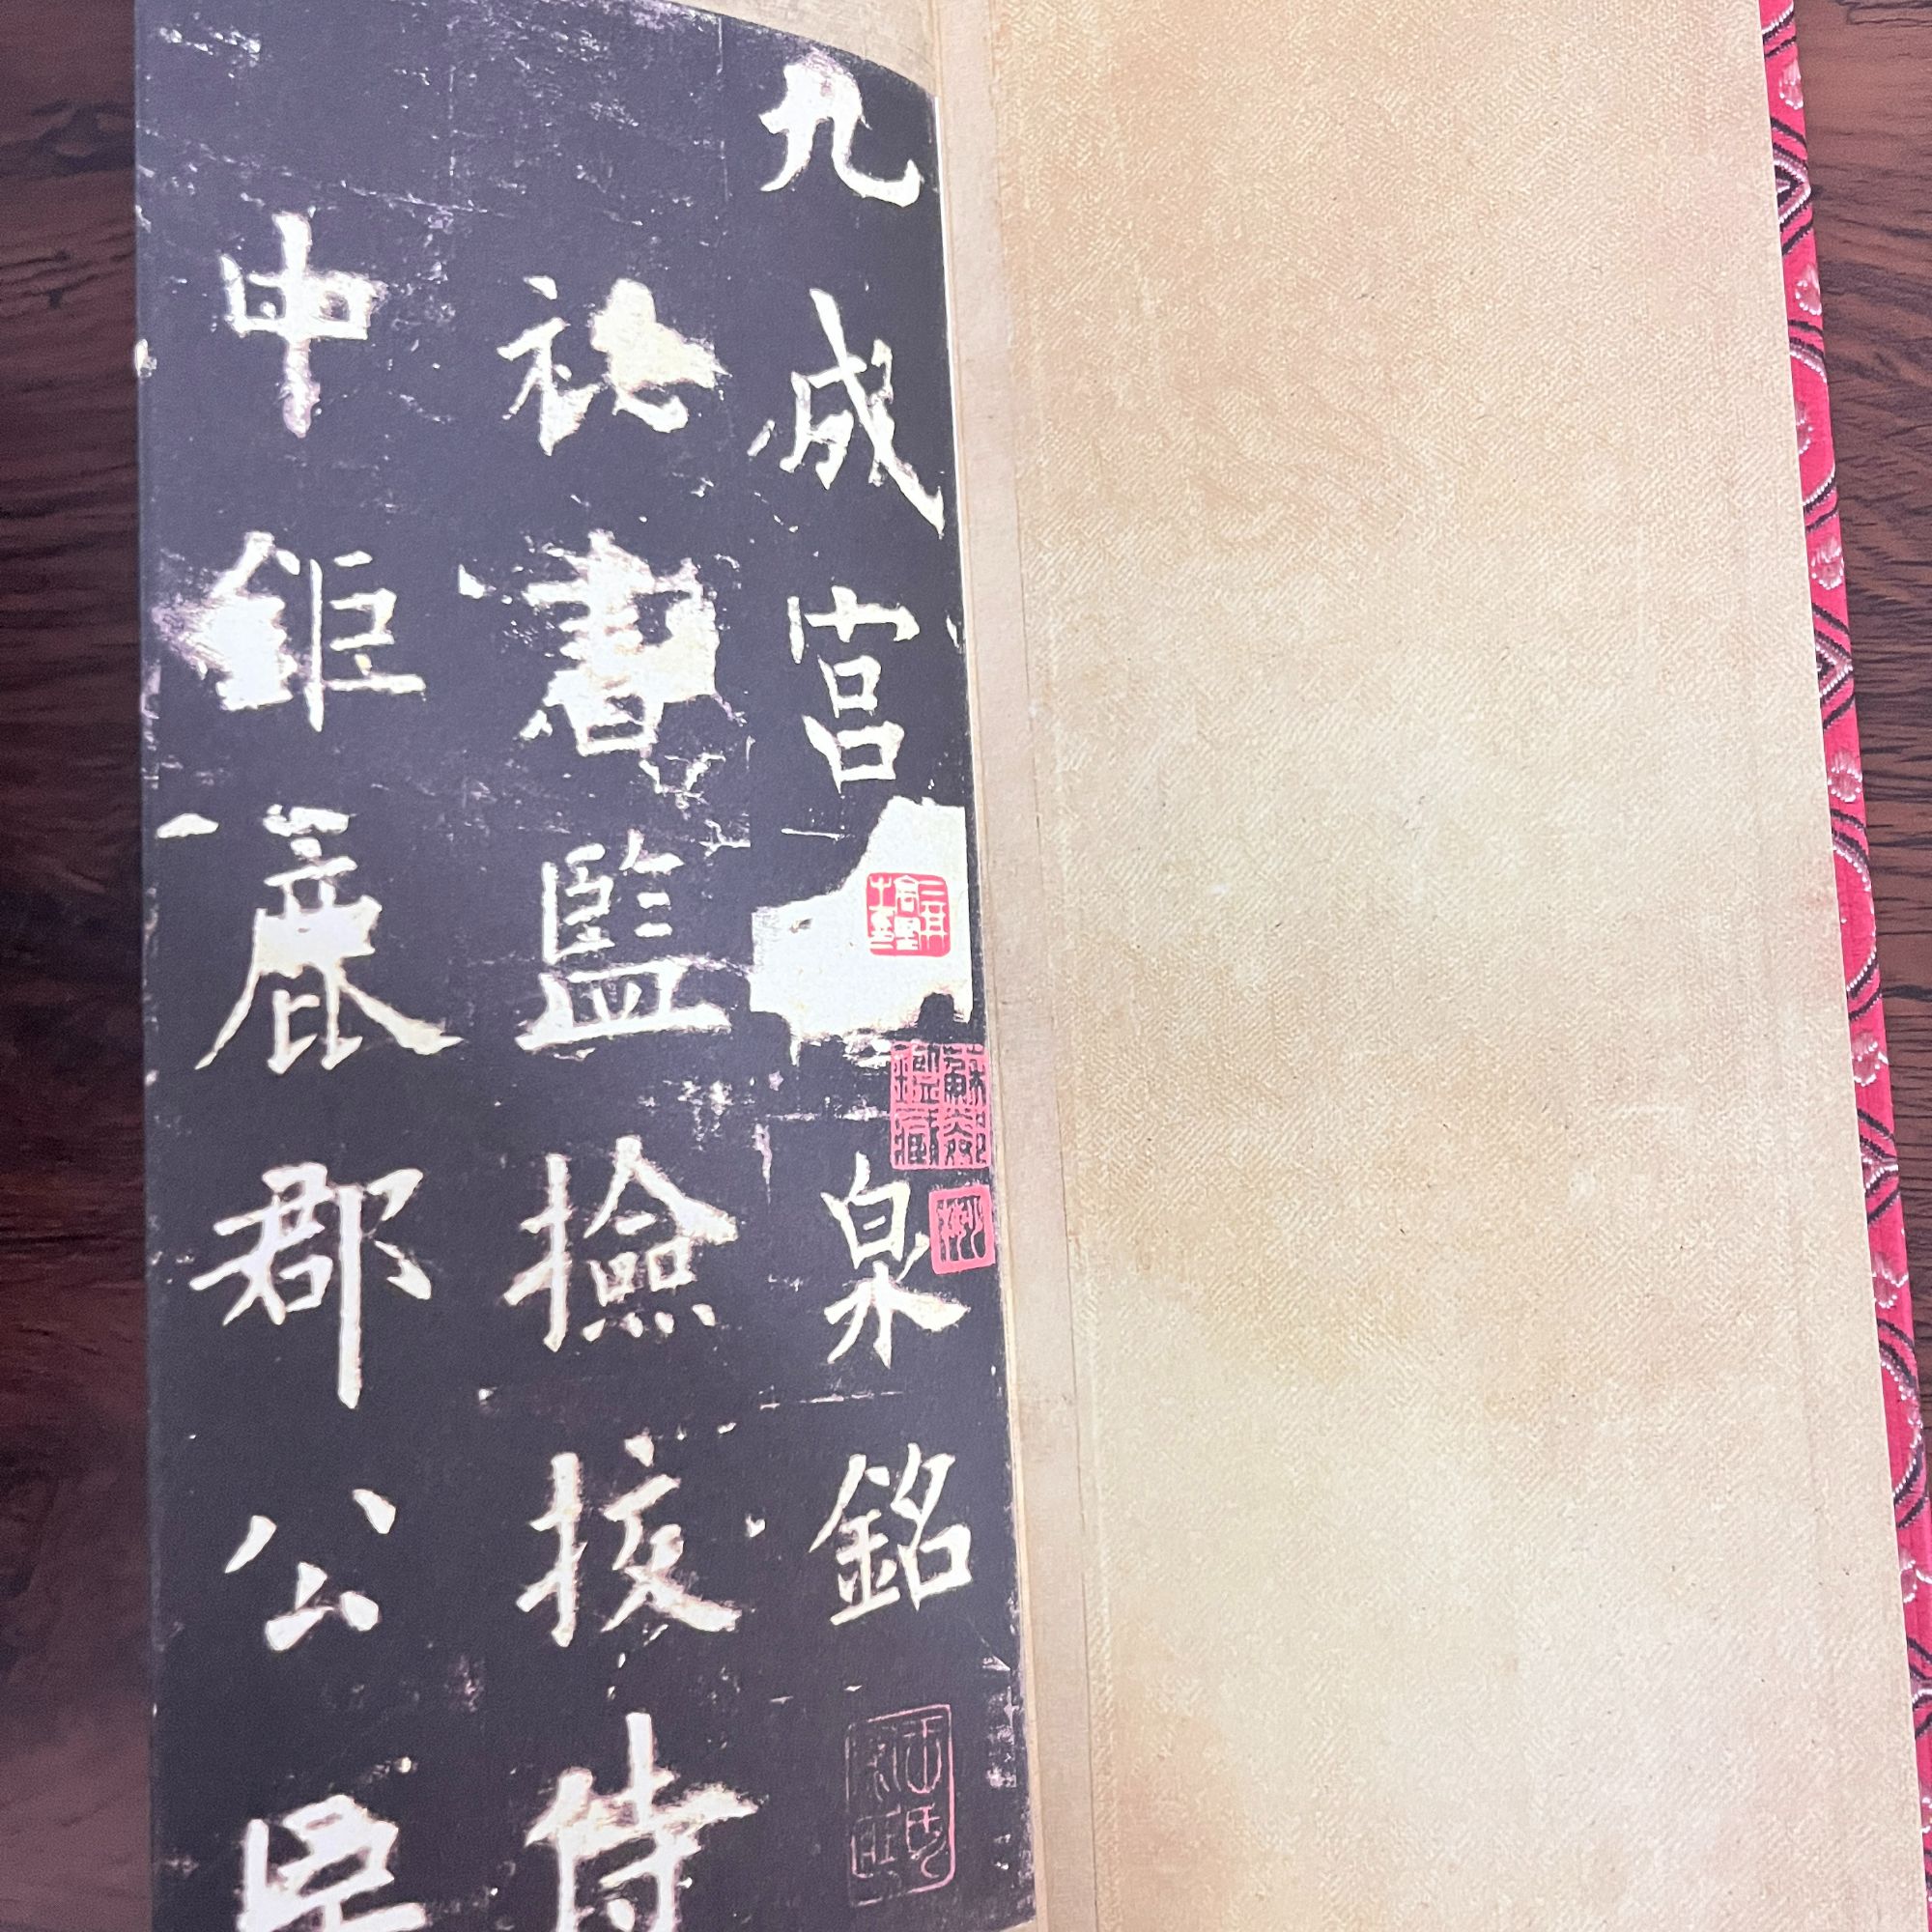 九成宮泉銘
祕書監撿挍侍
中鉅鹿郡公臣